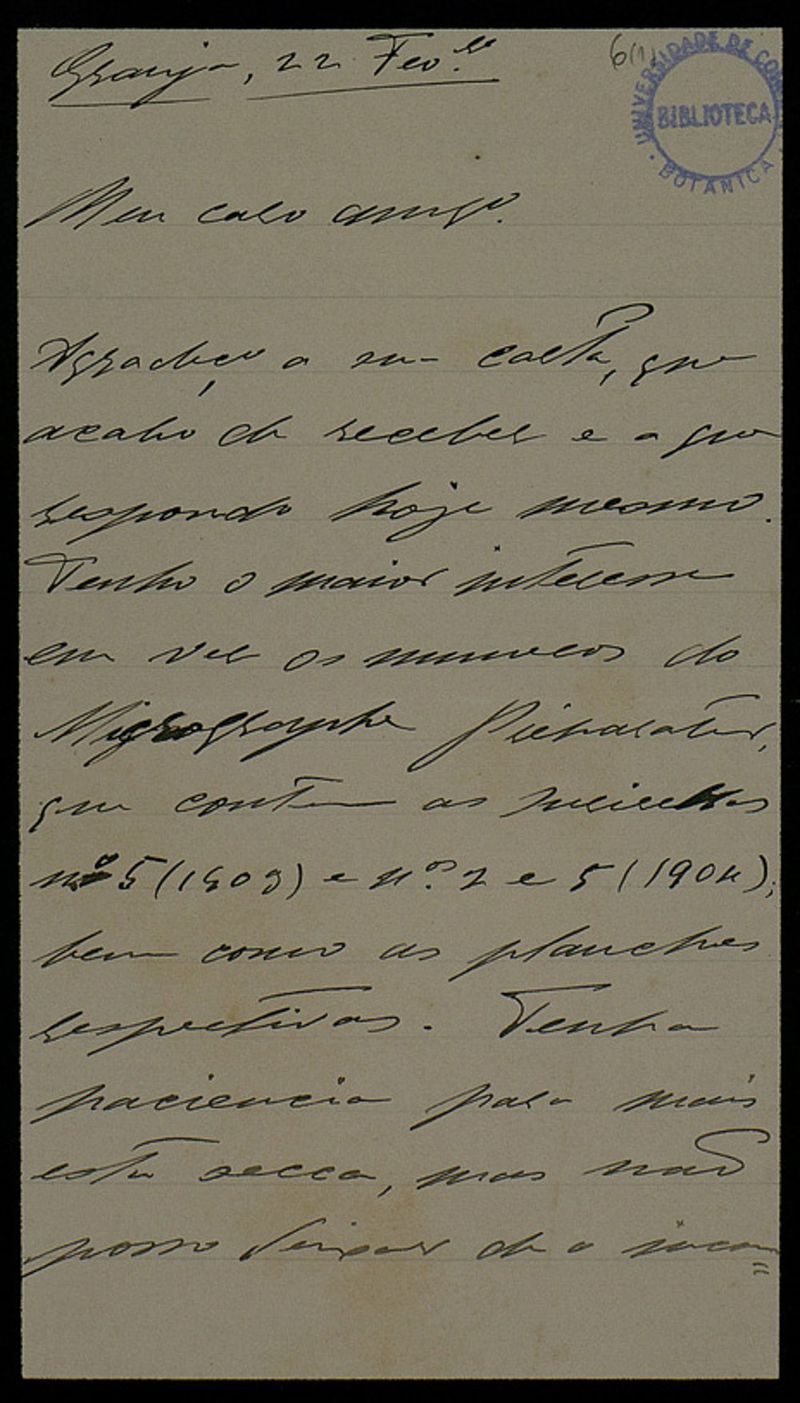 6(1)
UNIVERSIDADE DE COI
BIBLIOTECA
BOTANICA
Granja, 22 Fev.ro
Meu caro amigo.
Agradeço a sua carta, que
acabo de receber e a que
respondo hoje mesmo.
Tenho o maior interesse
em ver os numeros do
Micrographe Préparateur,
que contem as
nº 5 (1903) e n.os 2 e 5 (1904);
bem como as planches
respectivas. Tenha
paciencia para mais
esta secca, mas não
posso deixar de o incom=